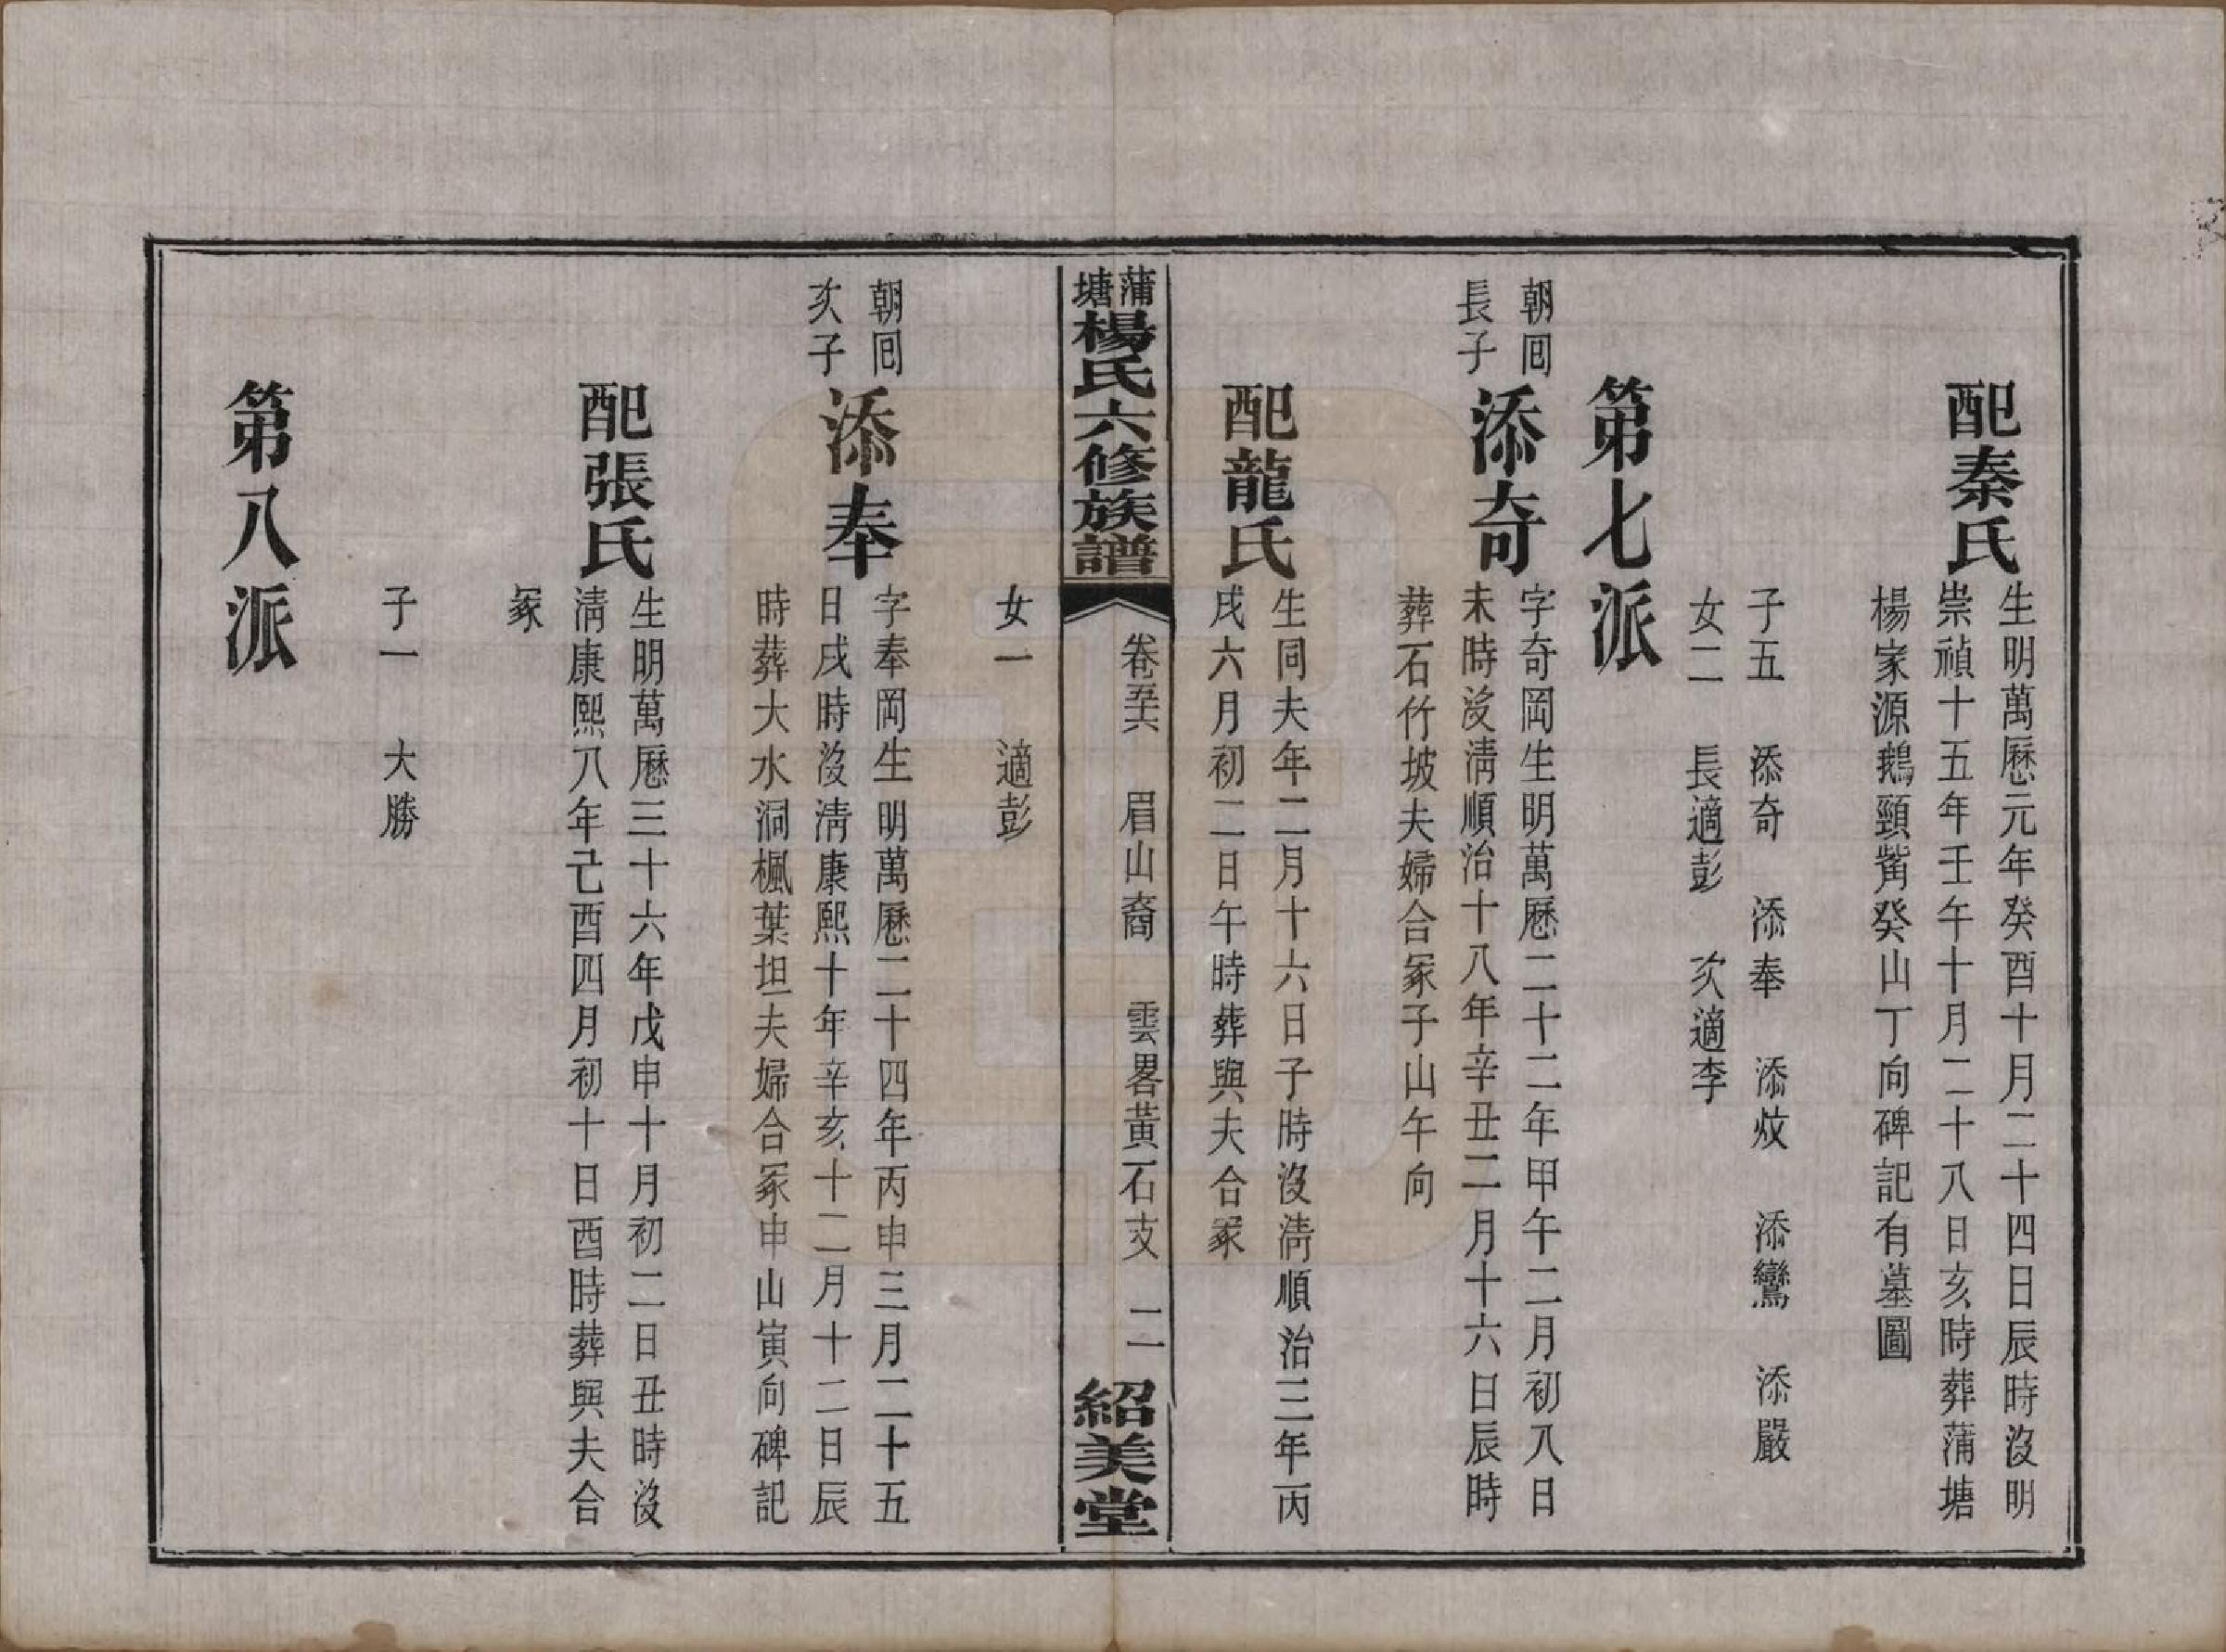 配秦氏
生明萬曆元年癸酉十月二十四日辰時沒明
崇禎十五年壬午十月二十八日亥時葬蒲塘
楊家源鵝頸觜癸山丁向碑記有墓圖
子五　添奇　添奉　添炆　添鸞　添嚴
女二　長適彭　次適李
第七派
朝囘
長子
添奇
字奇岡生明萬曆二十二年甲午二月初八日
未時沒清順治十八年辛丑二月十六日辰時
葬石竹坡夫婦合冢子山午向
配龍氏
生同夫年二月十六日子時沒清順治三年丙
戌六月初二日午時葬與夫合冢
蒲塘楊氏六修族譜
卷五六　眉山裔　雲畧黃石支　二
紹美堂
女一　適彭
朝囘
次子
添奉
字奉岡生明萬曆二十四年丙申三月二十五
日戌時沒清康熙十年辛亥十二月十二日辰
時葬大水洞楓葉坦夫婦合冢申山寅向碑記
配張氏
生明萬曆三十六年戊申十月初二日丑時沒
清康熙八年己酉四月初十日酉時葬與夫合
冢
子一　大勝
第八派